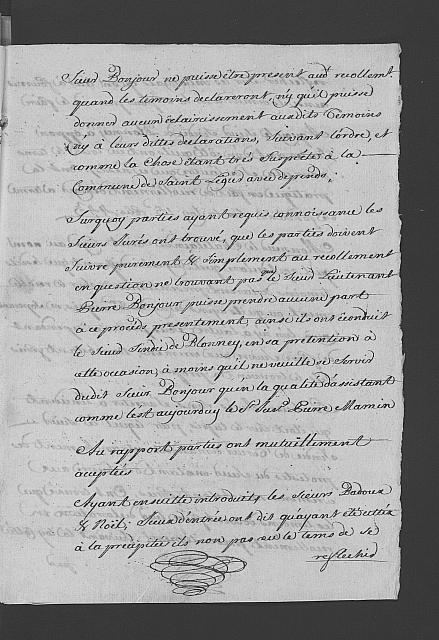 Sieur Bonjour ne puisse être present aud.t recollem.t
quand les temoins declareront, ny qu'il puisse
donner aucun éclaircissement aux dits Temoins
ny à leurs dittes declarations, suivant l'ordre, et
comme la Chose étant très suspecte à la
Commune de Saint Legié avec depends;
Surquoy parties ayant requis connoissance les
Sieurs Jurés ont trouvé, que les parties doivent
suivre purement & simplement au recollement
en question ne trouvant pas que le Sieur Lieutenant
Pierre Bonjour puisse prendre aucune part
à ce procès presentement, ainsi ils ont éconduit
le Sieur Sindic de Blonney, en sa prétention à
cette occasion, à moins qu'il ne veuille se servir
dudit Sieur Bonjour qu'en la qualité d'assistant
comme l'est aujourduy le Sr. Pierre Mamin
Au rapport parties ont mutuellement
acceptées
Ayant ensuitte introduits, les Sieurs Padoux
& Noil, Sieurs d'entrée ont dit qu'ayant été
à la precipitée ils n'ont pas eu le tems de se
reflechir